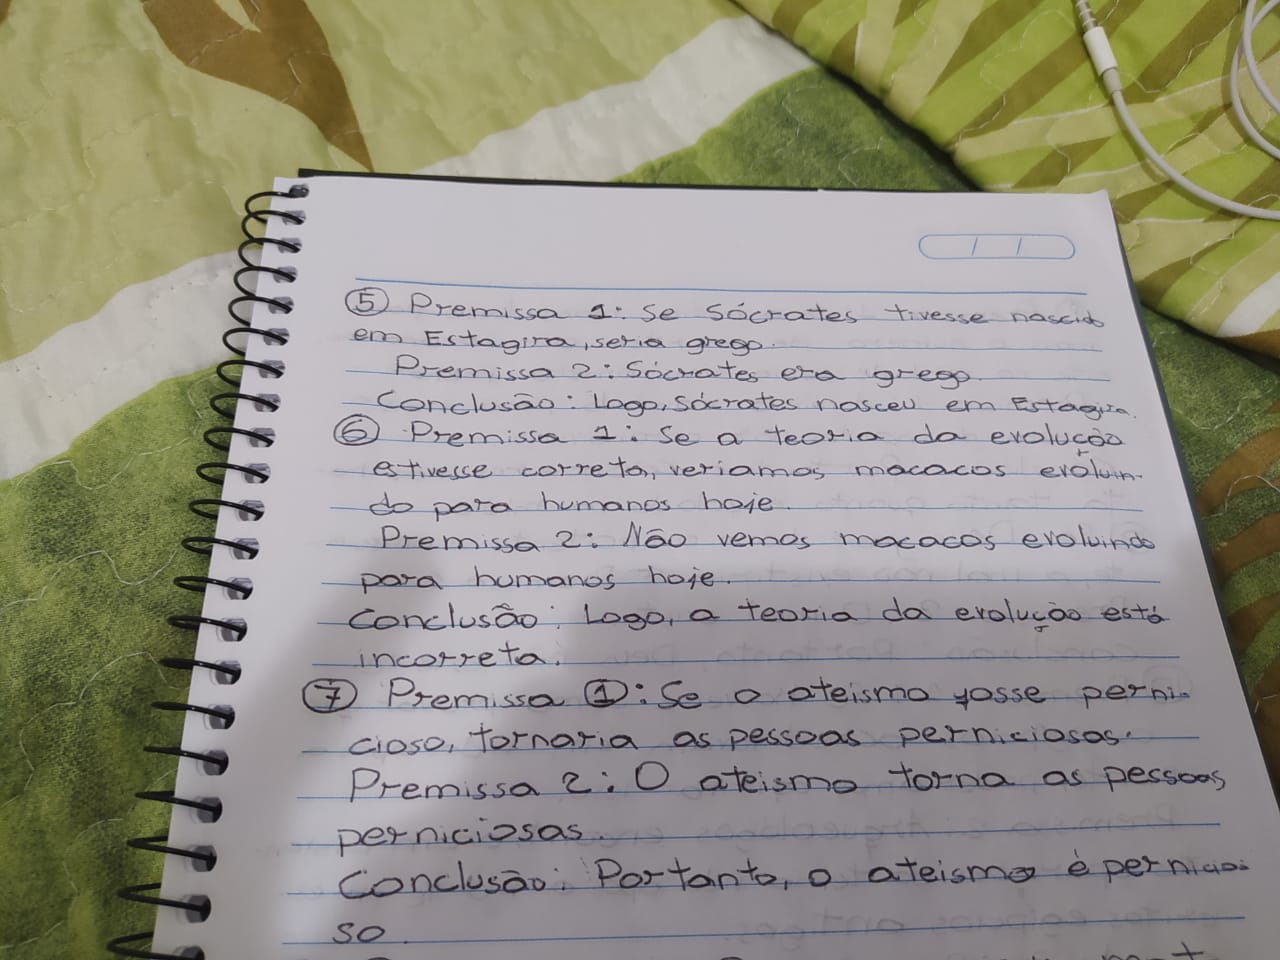 5 Premissa 1: Se Sócrates tivesse nascido
em Estagira, seria grego.
Premissa 2: Sócrates era grego.
Conclusão: Logo, Sócrates nasceu em Estagira.
6 Premissa 1: Se a teoria da evolução
estivesse correta, veriamos macacos evoluin-
do para humanos hoje.
Premissa 2: Não vemos macacos evoluindo
para humanos hoje.
Conclusão: Logo, a teoria da evolução está
incorreta.
7 Premissa 1: Se o ateismo fosse perni-
cioso, tornaria as pessoas perniciosas.
Premissa 2: O ateismo torna as pessoas
perniciosas.
Conclusão: Portanto, o ateismo é pernicio-
so.